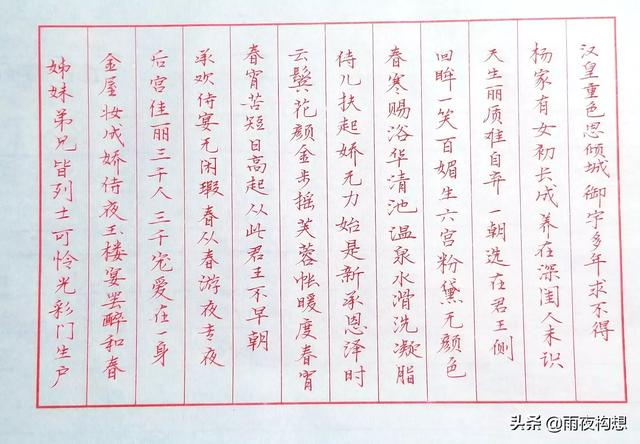 汉皇重色思倾城御宇多年求不得
杨家有女初长成养在深闺人未识
天生丽质难自弃一朝选在君王侧
回眸一笑百媚生六宫粉黛无颜色
春寒赐浴华清池温泉水滑洗凝脂
侍儿扶起娇无力始是新承恩泽时
云鬓花颜金步摇芙蓉帐暖度春宵
春宵苦短日高起从此君王不早朝
承欢侍宴无闲瑕春从春游夜专夜
后宫佳丽三千人三千宠爱在一身
金屋妆成娇侍夜玉楼宴罢醉和春
姊妹弟兄皆列士可怜光彩门生户
头条@雨夜构想